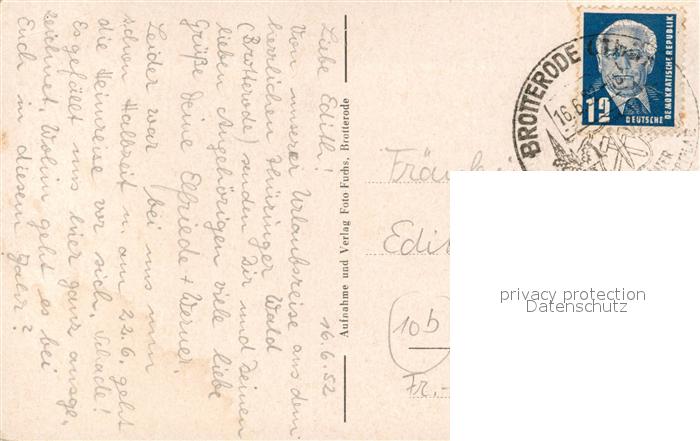 16.6.52
Liebe Edith!
Von unserer Urlaubsreise aus dem
herrlichen Thüringer Wald
(Brotterode) senden Dir und Deinen
lieben Angehörigen viele liebe
Grüße Deine Elfriede + Werner.
Leider war bei uns nun
schon Halbzeit u. am 22.6. geht
die Heimreise vor sich. Schade!
Es gefällt uns hier ganz ausge-
zeichnet. Wohin geht es bei
Euch in diesem Jahr?
Aufnahme und Verlag Foto Fuchs, Brotterode
BROTTERODE
16.6
12
DEUTSCHE
DEMOKRATISCHE REPUBLIK
Edit
10b
Fr.-
privacy protection
Datenschutz